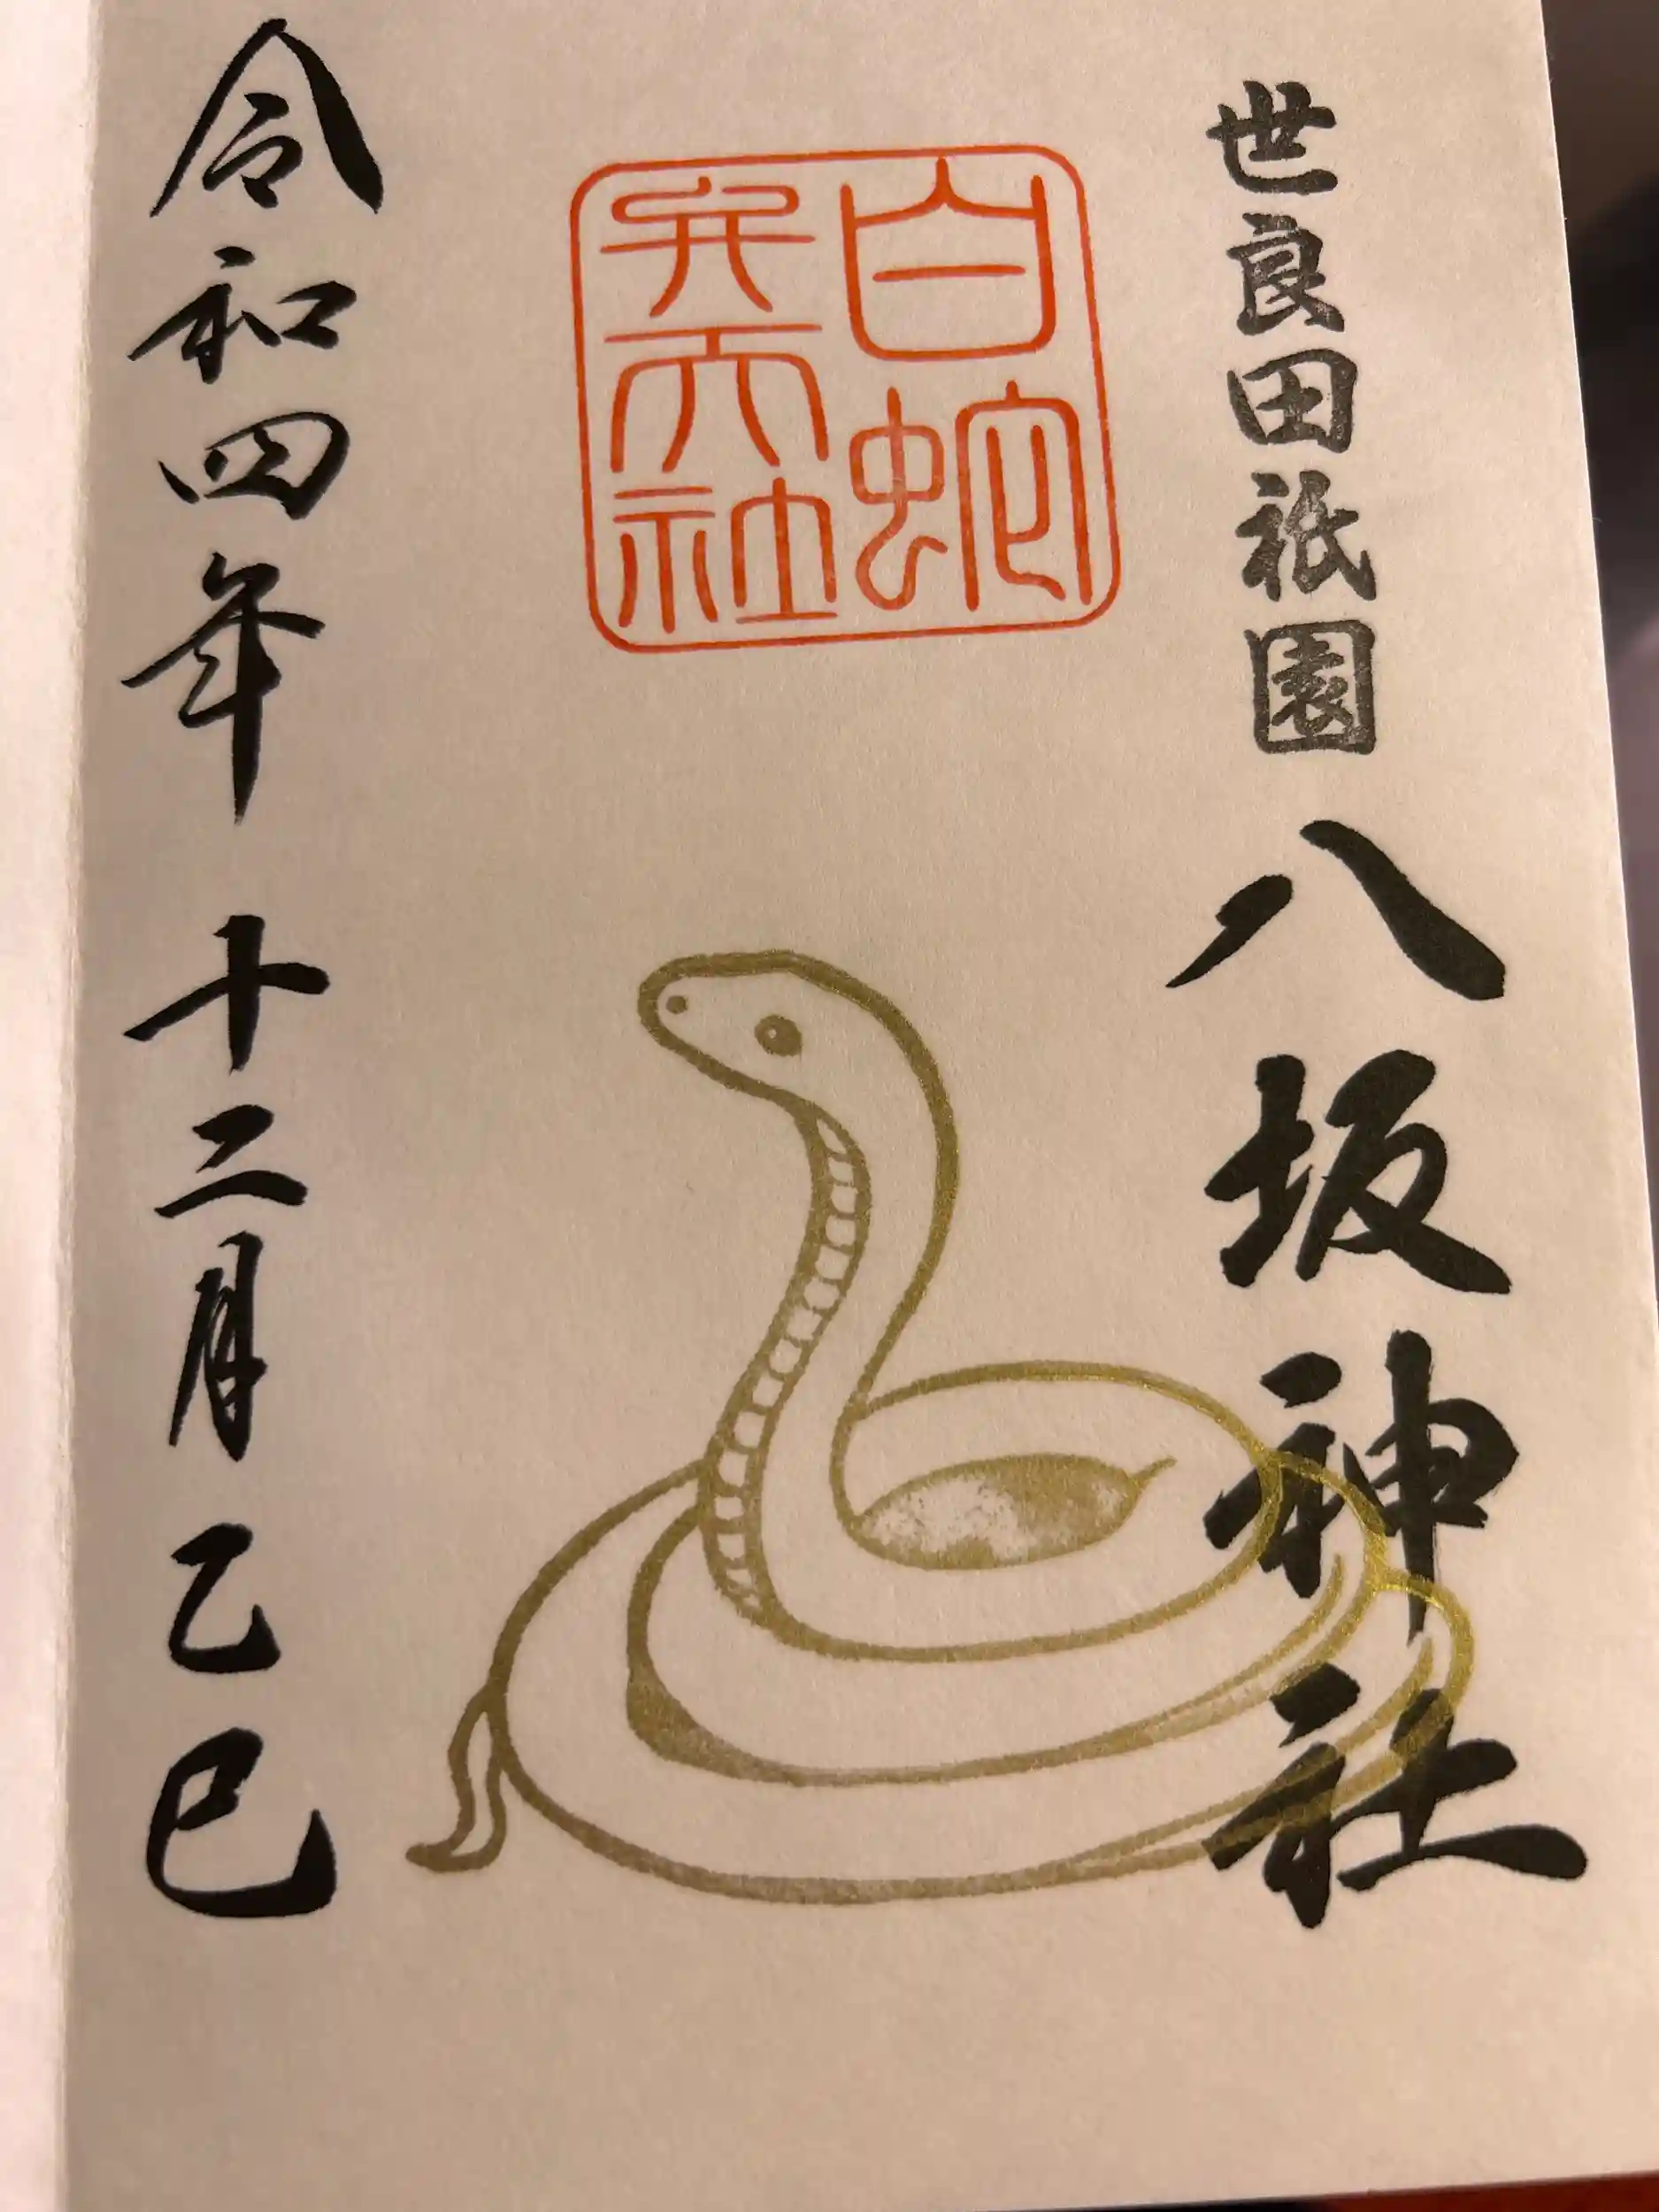 世良田祇園八坂神社
白蛇
弁天社
令和四年十二月乙巳